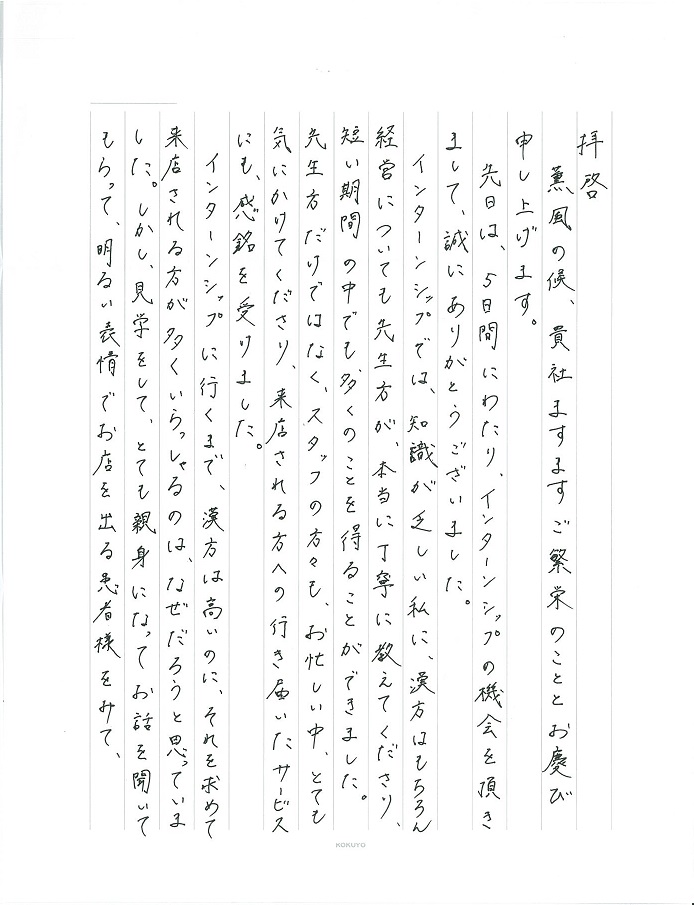 拝啓
薫風の候、貴社ますますご繁栄のこととお慶び
申し上げます。
先日は、5日間にわたり、インターンシップの機会を頂き
まして、誠にありがとうございました。
インターンシップでは、知識が乏しい私に、漢方はもちろん
経営についても先生方が、本当に丁寧に教えてくださり、
短い期間の中でも、多くのことを得ることができました。
先生方だけではなく、スタッフの方々も、お忙しい中、とても
気にかけてくださり、来店される方への行き届いたサービス
にも、感銘を受けました。
インターンシップに行くまで、漢方は高いのに、それを求めて
来店される方が多くいらっしゃるのは、なぜだろうと思っていま
した。しかし、見学をして、とても親身になってお話を聞いて
もらって、明るい表情でお店を出る患者様をみて、
KOKUYO